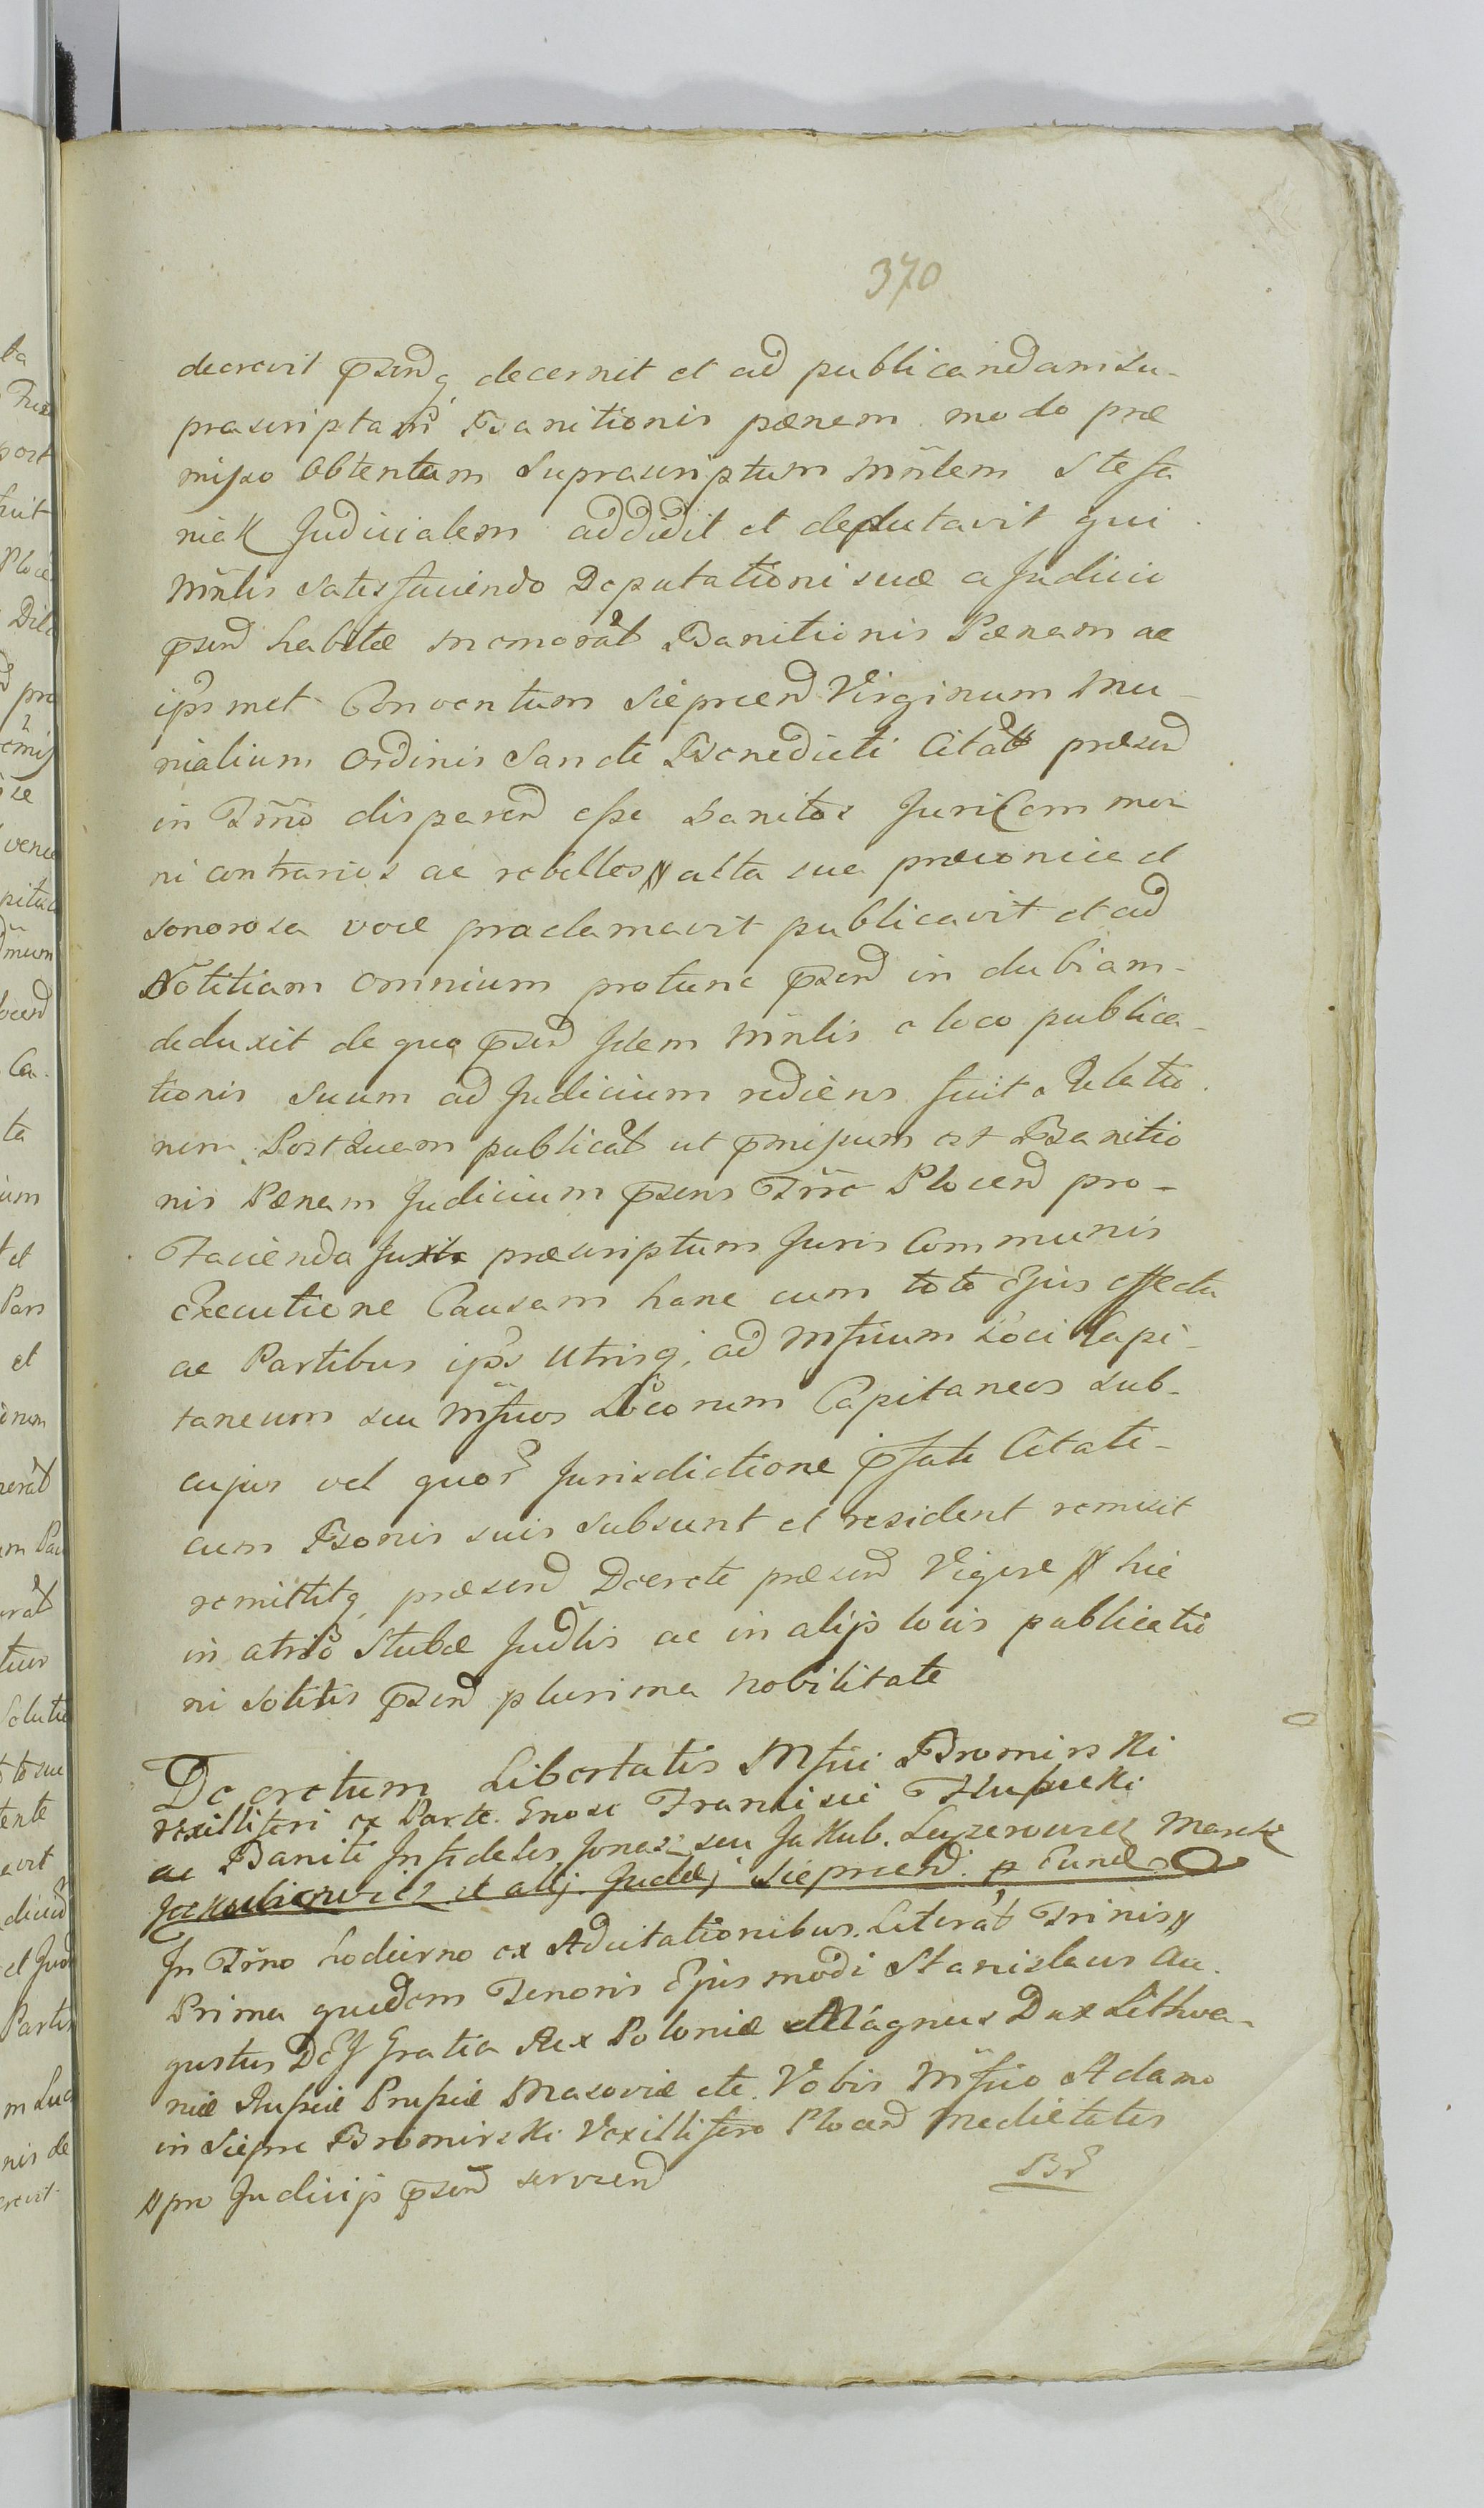 370
decrevit p̄sendq decernit et ad publicandam su-
prascriptam Banitionis pænam modo præ
misso obtentam suprascriptum Mn̄lem Stefa
niak Judicialem addidit et deputavit qui
Mn̄lis satisfaciendo Deputationi suæ a Judicio
p̄send habitæ memorat Banitionis Pænam ac
ips̄met Conventum Siepreen̄ Virginum Mo-
nialium Ordinis Sancti Benedicti Citat præsend
in Tr̄no disparend esse banitos Juri Com mu
ni contrarios ac rebelles // alta sua præconica et
sonorosa voce proclamavit publicavit et ad
Notitiam omnium protunc p̄send in dubiam-
deduxit de quo p̄send Idem Mn̄lis a loco publica-
tionis suum ad Judicium rediens fuit Relatio
nem. Post quam publicat ut p̄missum est Banitio
nis Pænam Judicium p̄sens Tr̄re Plocend pro-
Facienda Juxta præscriptum Juris Communis
Executione Causam hanc cum toto Ejus effectu
ac Partibus ips̄ Utrisq, ad Mf̄icum Loci Capi-
taneum seu Mf̄icos Locorum Capitaneos sub-
cujus vel quor Jurisdictione p̄fati Citati-
cum Bsonis suis subsunt et resident remisit
remittitq præsend Decreti præsend Vigore // hic
in atrio Stubæ Jud̄lis ac in alijs locis publicatio
ni solitis p̄send plurima nobilitate
Decretum Libertatis Mf̄ici Bromirski
vexilliferi ex Parte Gnosi Francisci Hlupecki
ac Baniti Infideles Jonas seu Jakub. Lazerowicz Marek
Jakubiowicz et alij Judei Siepreend
In Tr̄no hodierno ex Adcitationibus Literat Trinis //
Prima quidem Tenoris Ejus modi Stanislaus Au-
gustus DEJ Gratia Rex Poloniæ Magnus Dux Lithua-
niæ Russiæ Prussiæ Masoviæ etc. Vobis Mf̄ico Adamo
in Sieprc Bromirski Vexillifero Plocend Medietatis
// pro Judicijs p̄send serviend